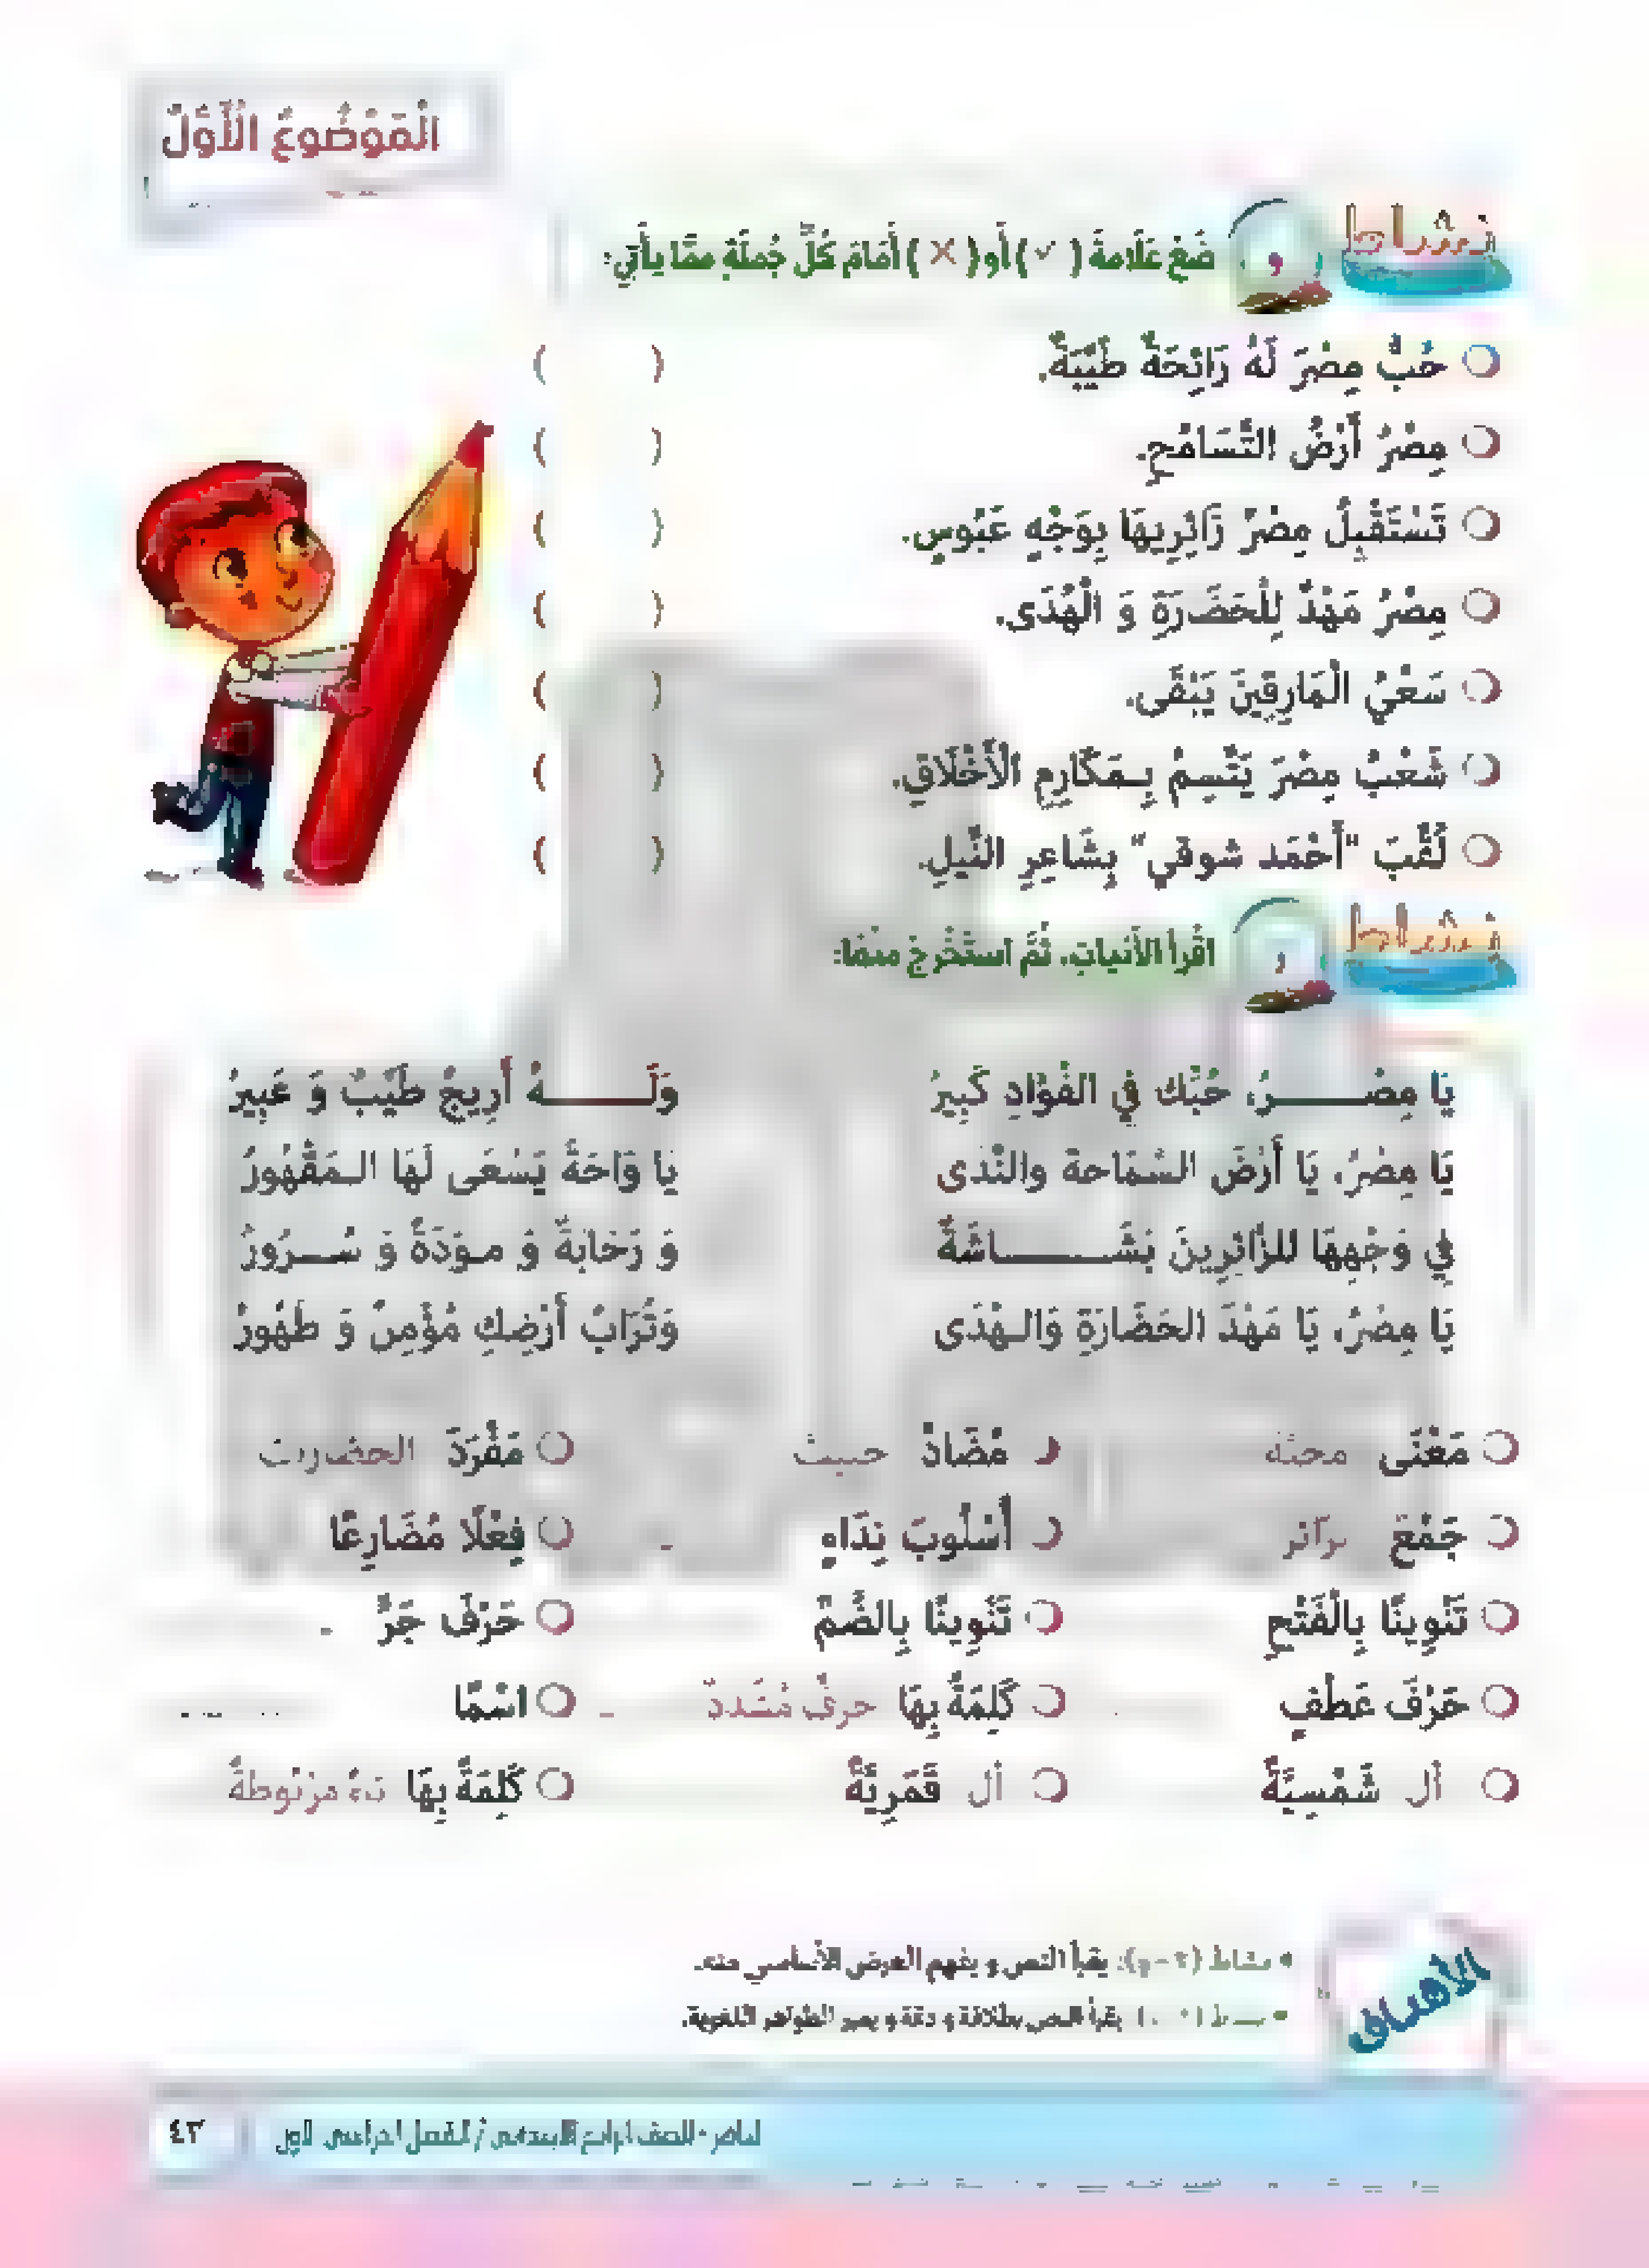 الْمَوْضُوعُ الْأَوَّلُ
نشاط
ضَعْ عَلَامةَ ( ✓ ) أَو ( ✕ ) أَمَامَ كُلِّ جُملَةٍ ممَّا يأتي:
حُبُّ مِصْرَ لَهُ رَائِحَةٌ طَيِّبَةٌ. ( )
مِصْرُ أَرْضُ التَّسَامُحِ. ( )
تَسْتَقْبِلُ مِصْرُ زَائِرِيهَا بِوَجْهٍ عَبُوسٍ. ( )
مِصْرُ مَهْدٌ لِلْحَضَارَةِ وَ الْهُدَى. ( )
سَعْيُ الْمَارِقِينَ يَبْقَى. ( )
شَعْبُ مِصْرَ يَتَّسِمُ بِمَكَارِمِ الْأَخْلَاقِ. ( )
لُقِّبَ "أَحْمَد شوقي" بِشَاعِرِ النِّيلِ. ( )
نشاط
اقْرأ الأبيات، ثُمَّ استَخْرِجْ منهَا:
يَا مِصْـــــرُ، حُبُّك فِي الفُؤَادِ كَبِيرُ وَلَـــــهُ أَرِيجٌ طَيِّبٌ وَ عَبِيرُ
يَا مِصْرُ، يَا أَرْضَ السَّمَاحة والنَّدَى يَا وَاحَةً يَسْعَى لَهَا الـمَقْهُورُ
فِي وَجْهِهَا للزَّائِرِينَ بَشَـــــاشَةٌ وَ رَحَابَةٌ وَ مـوَدَةٌ وَ سُـــرُورُ
يَا مِصْرُ، يَا مَهْدَ الحَضَارَةِ وَالـهُدَى وَتُرَابُ أَرْضِكِ مُؤْمِنٌ وَ طَهُورُ
مَعْنَى محبَّة مُضَادَّ خبيث مُفْرَدَ الحضارات
جَمْعَ زائر أُسْلُوبَ نِدَاءٍ فِعْلًا مُضَارِعًا
تَنْوِينًا بِالْفَتْحِ تَنْوِينًا بِالضَّمِّ حَرْفَ جَرٍّ
حَرْفَ عَطْفٍ كَلِمَةً بِهَا حرفٌ مُشَددٌ اسْمًا
أل شَمْسِيَّةً أل قَمَرِيَّةً كَلِمَةً بِهَا تاءٌ مربوطةٌ
الأهداف
يقرأ النص و يفهم الغرض الأساسي منه.
يقرأ النص بطلاقة و دقة و يميز الظواهر اللغوية.
للصف الرابع الابتدائي / الفصل الدراسي الأول
٤٣